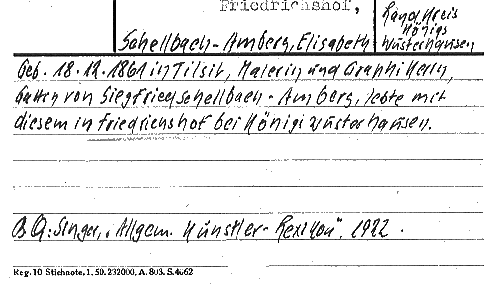 Friedrichshof,
Landkreis
Königs
Wusterhausen
Schellbach-Amberg, Elisabeth
Geb. 18.12.1861 in Tilsit, Malerin und Graphikerin,
Gattin von Siegfried Schellbach-Amberg, lebte mit
diesem in Friedrichshof bei Königswusterhausen.
B Q: Singer, "Allgem. Künstler-Lexikon". 1922.
Reg. 10 Stichnote, 1. 50. 232000, A. 803. S. 4662